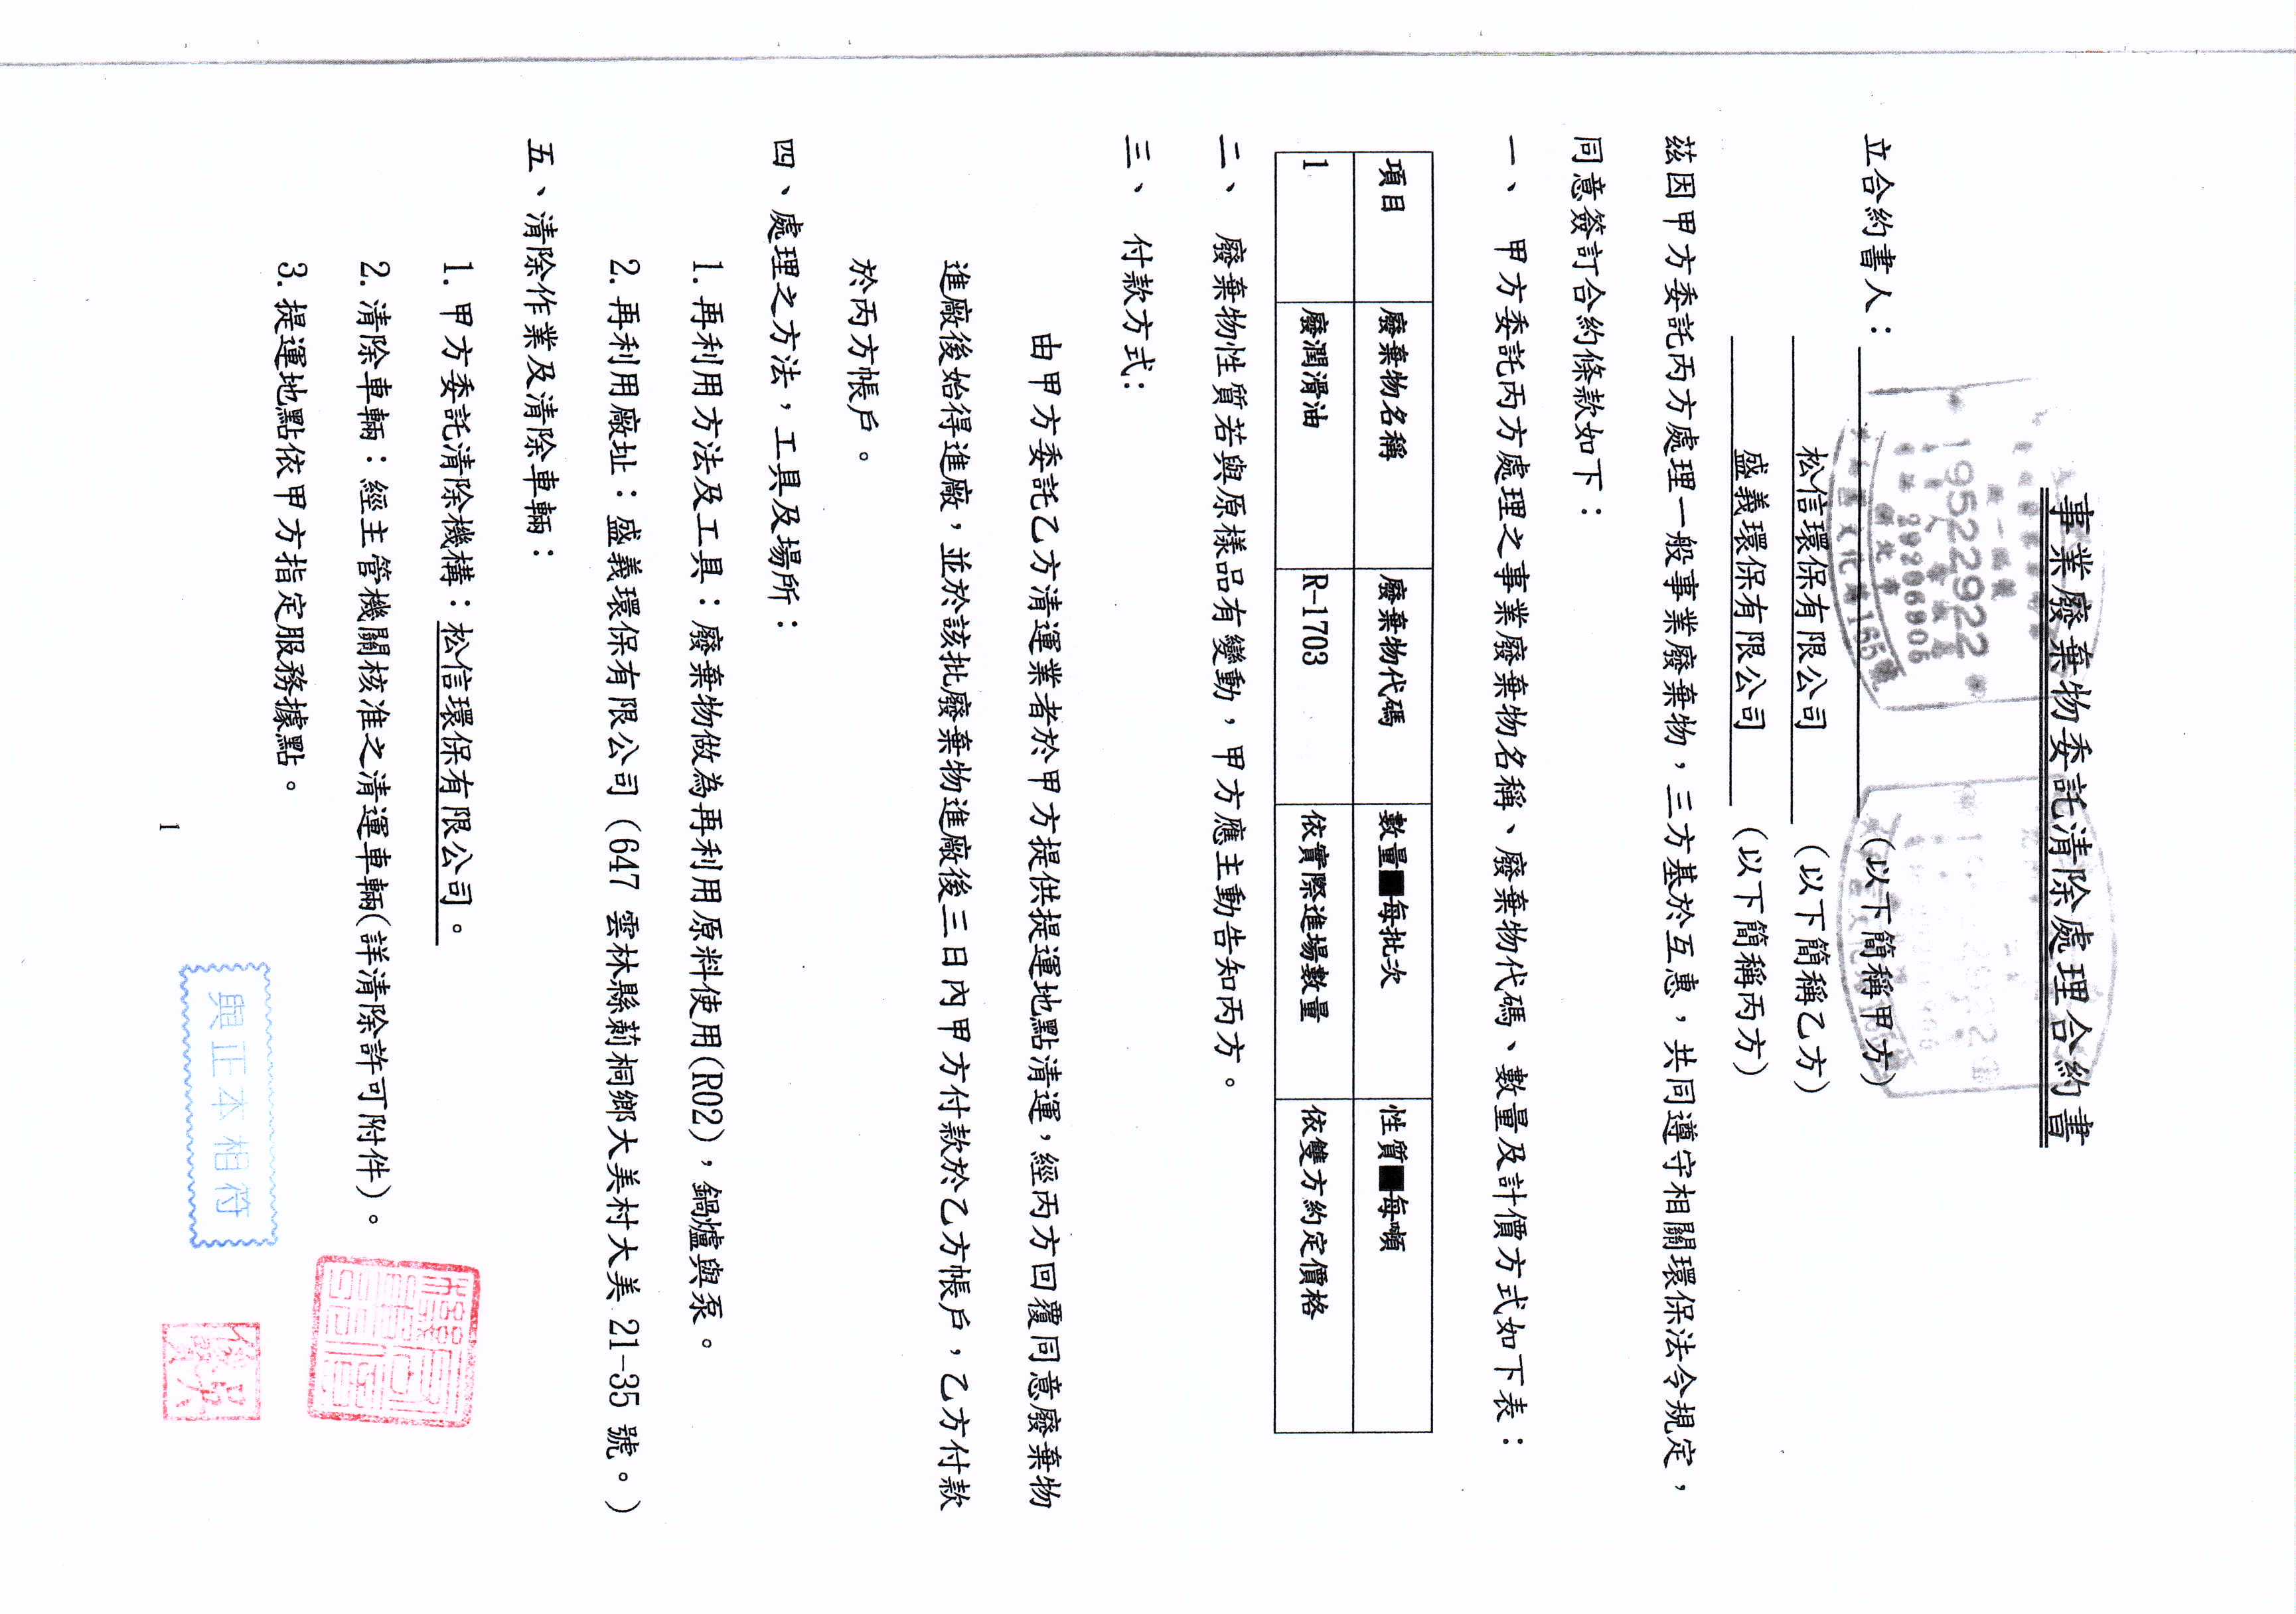 事業廢棄物委託清除處理合約書
立合約書人：（以下簡稱甲方）
19522922
29206905
文化路165號
松信環保有限公司（以下簡稱乙方）
盛義環保有限公司（以下簡稱丙方）
茲因甲方委託丙方處理一般事業廢棄物，三方基於互惠，共同遵守相關環保法令規定，
同意簽訂合約條款如下：
一、 甲方委託丙方處理之事業廢棄物名稱、廢棄物代碼、數量及計價方式如下表：
項目 廢棄物名稱 廢棄物代碼 數量■每批次 性質■每噸
1 廢潤滑油 R-1703 依實際進場數量 依雙方約定價格
二、 廢棄物性質若與原樣品有變動，甲方應主動告知丙方。
三、 付款方式：
由甲方委託乙方清運業者於甲方提供提運地點清運，經丙方回覆同意廢棄物
進廠後始得進廠，並於該批廢棄物進廠後三日內甲方付款於乙方帳戶，乙方付款
於丙方帳戶。
四、處理之方法，工具及場所：
1.再利用方法及工具：廢棄物做為再利用原料使用(R02)，鍋爐與泵。
2.再利用廠址：盛義環保有限公司（647 雲林縣莿桐鄉大美村大美 21-35 號。）
五、清除作業及清除車輛：
1.甲方委託清除機構：松信環保有限公司。
2.清除車輛：經主管機關核准之清運車輛(詳清除許可附件)。
3.提運地點依甲方指定服務據點。
與正本相符
1